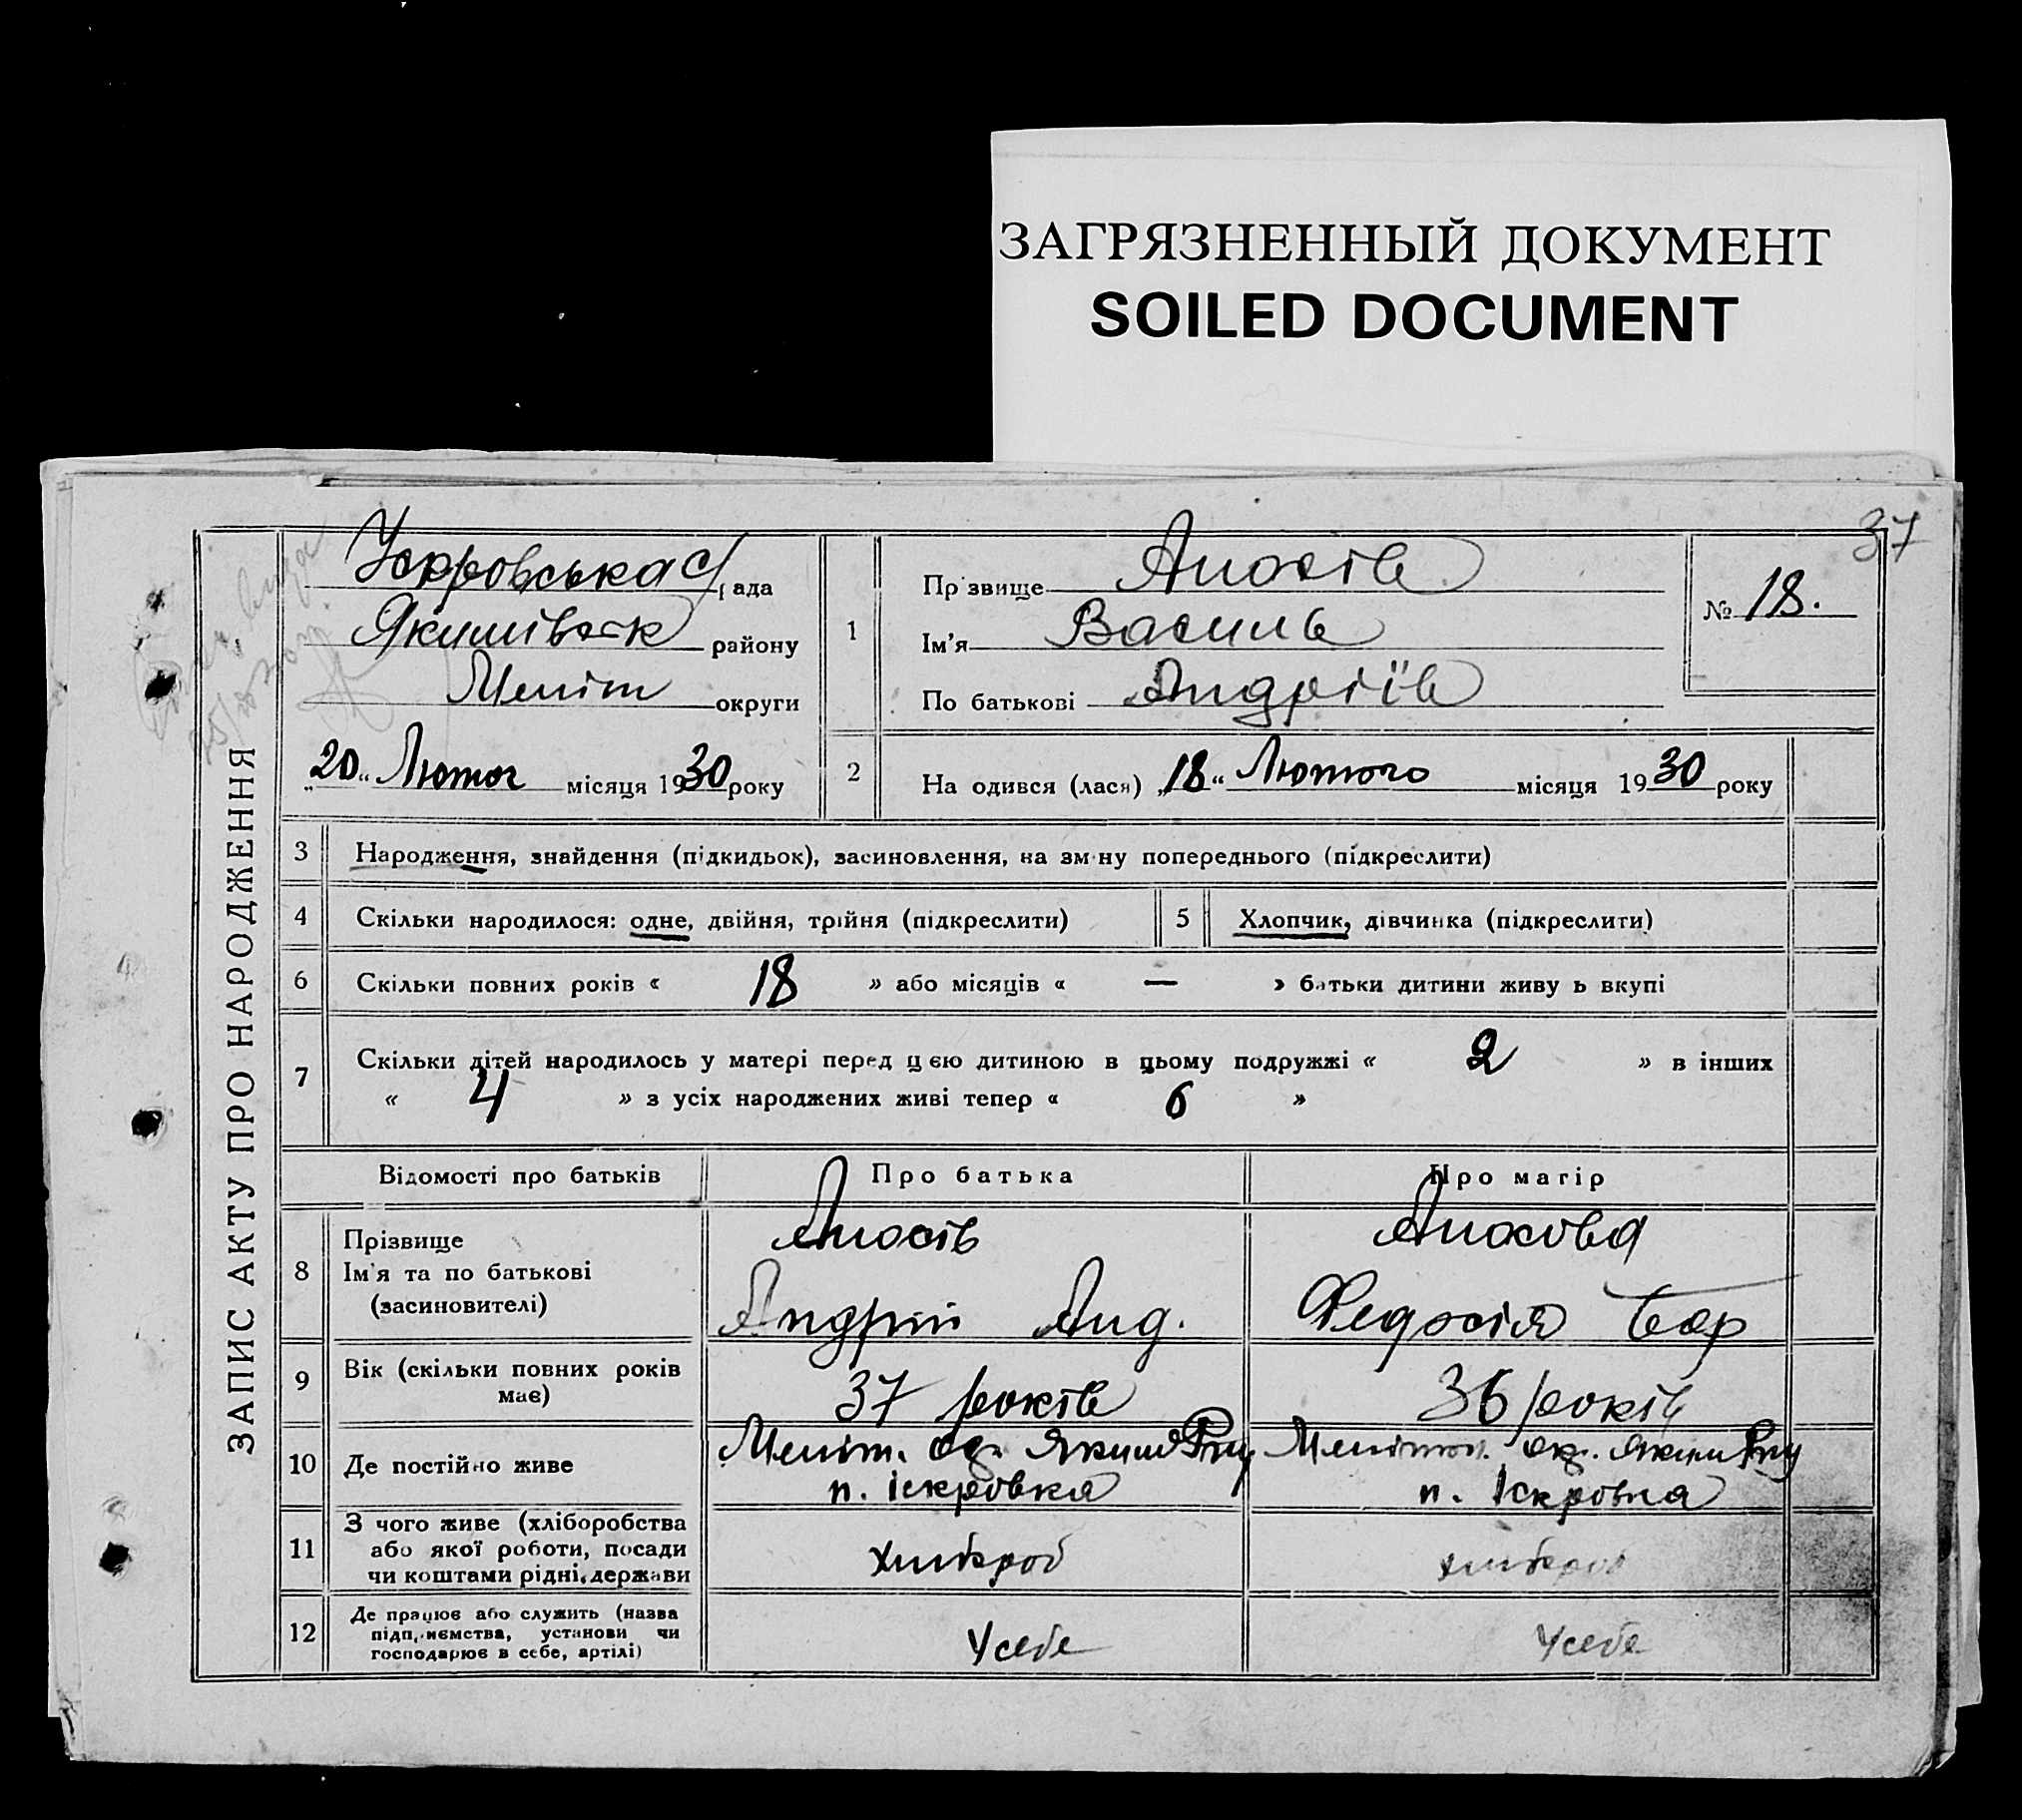 ЗАГРЯЗНЕННЫЙ ДОКУМЕНТ
SOILED DOCUMENT
37
ЗАПИС АКТУ ПРО НАРОДЖЕННЯ
Іскровська с/рада
Якимівськ району
Меліт округи
„20“ Лютог місяця 1930 року
1
Прізвище Аносів
Ім'я Василь
По батькові Андріїв
№ 18.
2
Народився (лася) „18“ Лютого місяця 1930 року
3 Народження, знайдення (підкидьок), засиновлення, на зміну попереднього (підкреслити)
4 Скільки народилося: одне, двійня, трійня (підкреслити)
5 Хлопчик, дівчинка (підкреслити)
6 Скільки повних років « 18 » або місяців « — » батьки дитини живуть вкупі
7 Скільки дітей народилось у матері перед цією дитиною в цьому подружжі « 2 » в інших
« 4 » з усіх народжених живі тепер « 6 »
Відомості про батьків Про батька Про матір
8 Прізвище
Ім'я та по батькові
(засиновителі)
Аносів
Андрій Анд.
Аносова
Федосія
9 Вік (скільки повних років
має)
37 років
36 років
10 Де постійно живе
Меліт. ок. Яким Р-ну
п. Іскровка
Мелітоп. ок. Яким Р-ну
п. Іскровка
11 З чого живе (хліборобства
або якої роботи, посади
чи коштами рідні, держави
хлібороб
хлібороб
12 Де працює або служить (назва
підприємства, установи чи
господарює в себе, артілі)
У себе
У себе